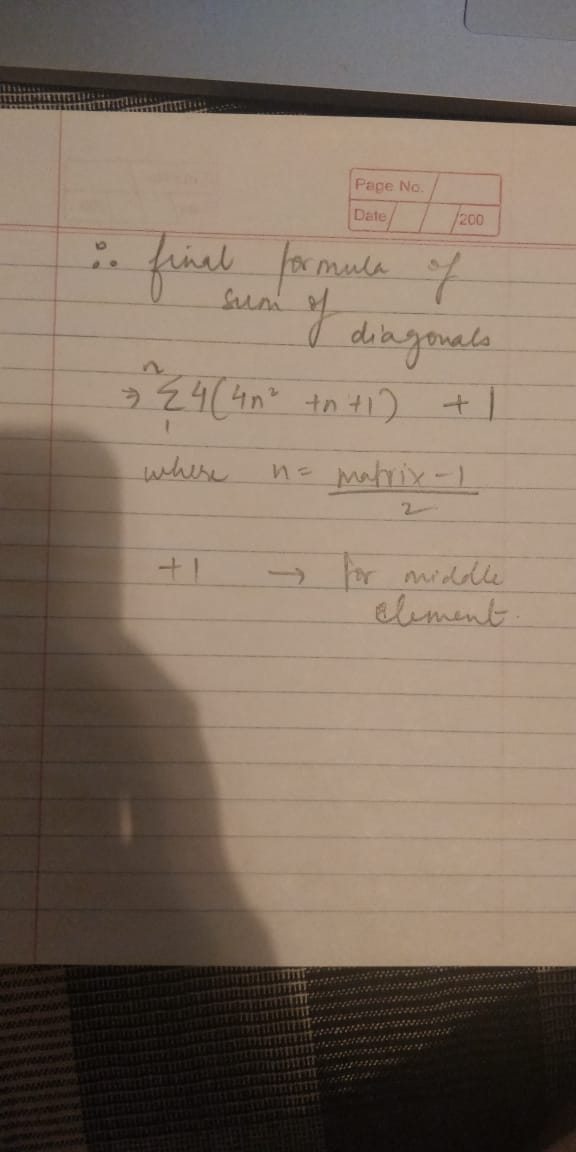 Page No.
Date / / 200
∴ final formula of
sum of
diagonals
n
→ Σ 4(4n² + n + 1) + 1
1
where n = matrix - 1
2
+1 → for middle
element.